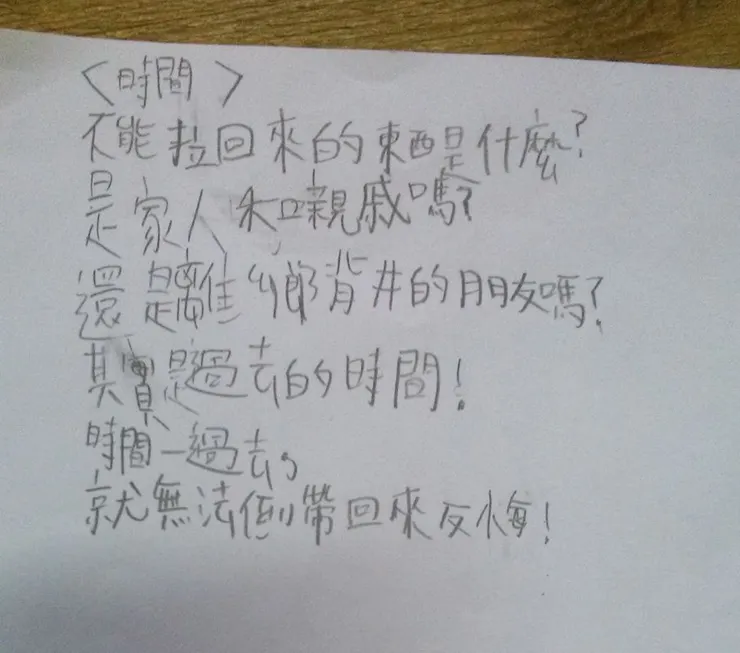 〈時間〉
不能拉回來的東西是什麼?
是家人和親戚嗎?
還是離鄉背井的朋友嗎?
其實是過去的時間!
時間一過去,
就無法倒帶回來反悔!